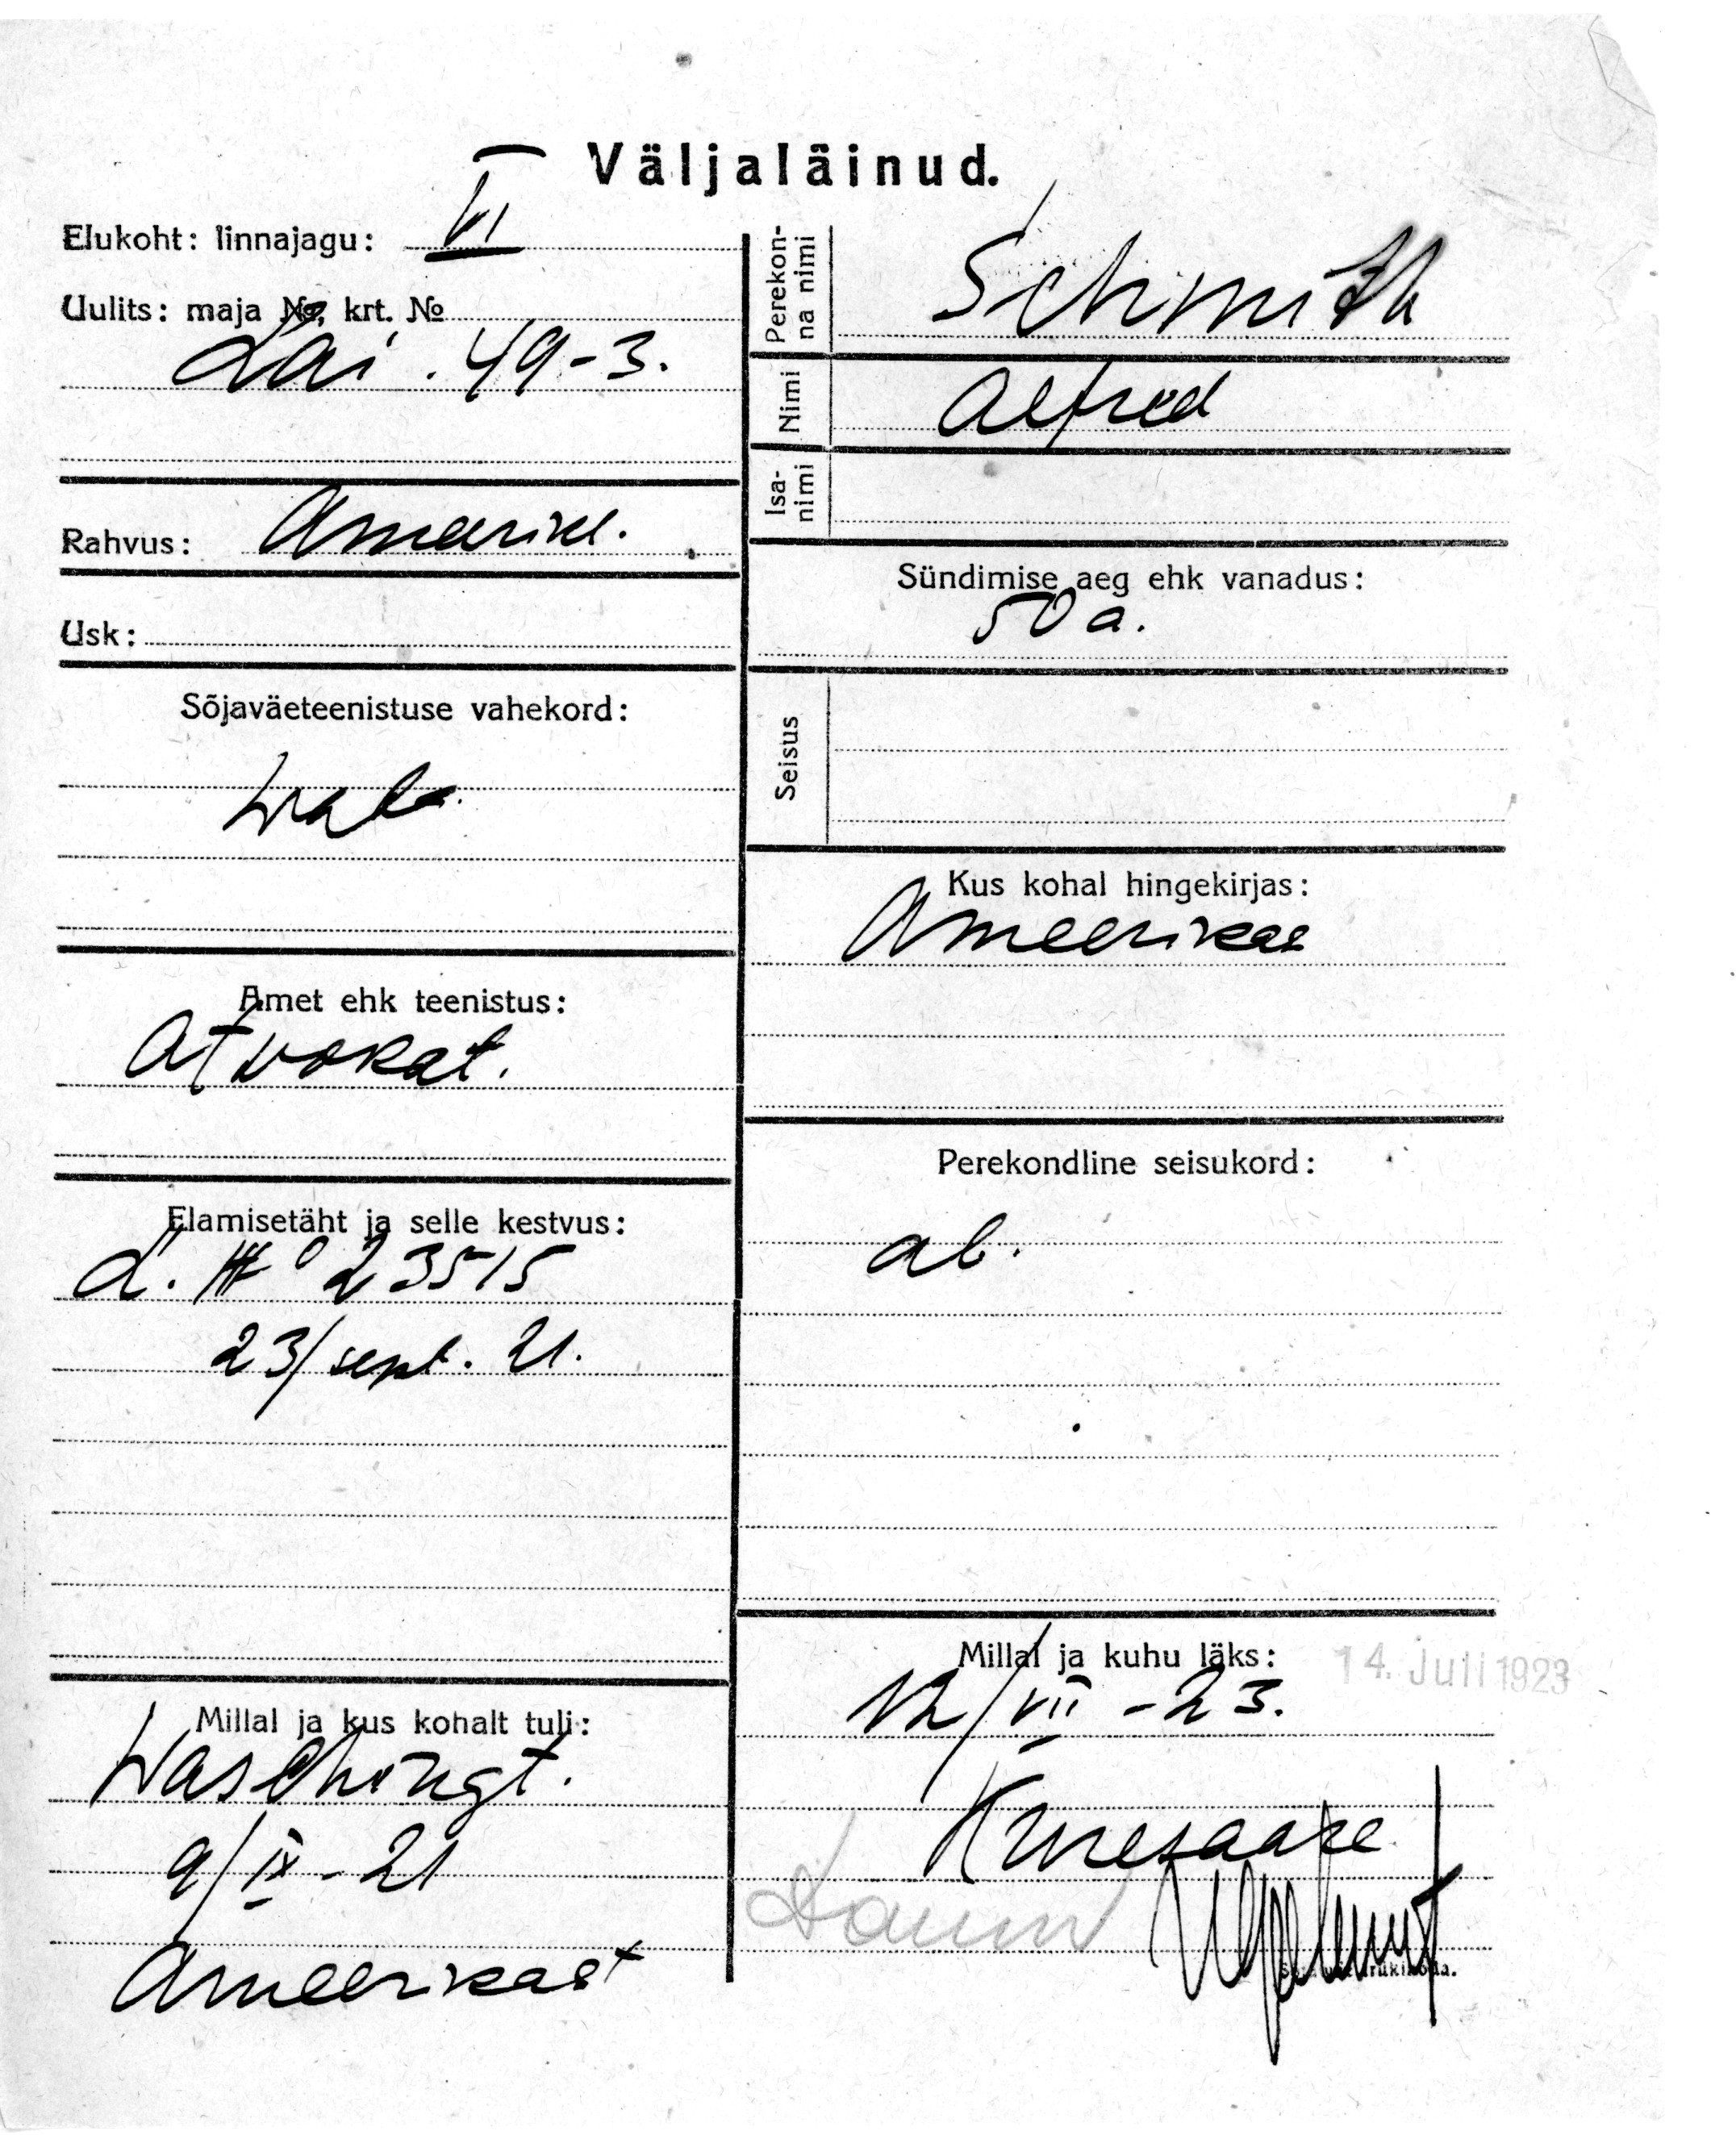 Väljaläinud.
Elukoht: linnajagu: VI
Uulits: maja №, krt. №
Lai. 49-3.
Rahvus: Ameerikl.
Usk:
Sõjaväeteenistuse vahekord:
waba
Amet ehk teenistus:
Atvokat.
Elamisetäht ja selle kestvus:
23515
23/sept. 21.
Millal ja kus kohalt tuli:
Waschingt.
9/IX - 21
Ameerikast
Perekon-
na nimi
Schmith
Nimi
Alfred
Isa-
nimi
Sündimise aeg ehk vanadus:
50 a.
Seisus
Kus kohal hingekirjas:
Ameerikas
Perekondline seisukord:
ab.
Millal ja kuhu läks:
14. Juli 1923
12/VII - 23.
Kuresaare